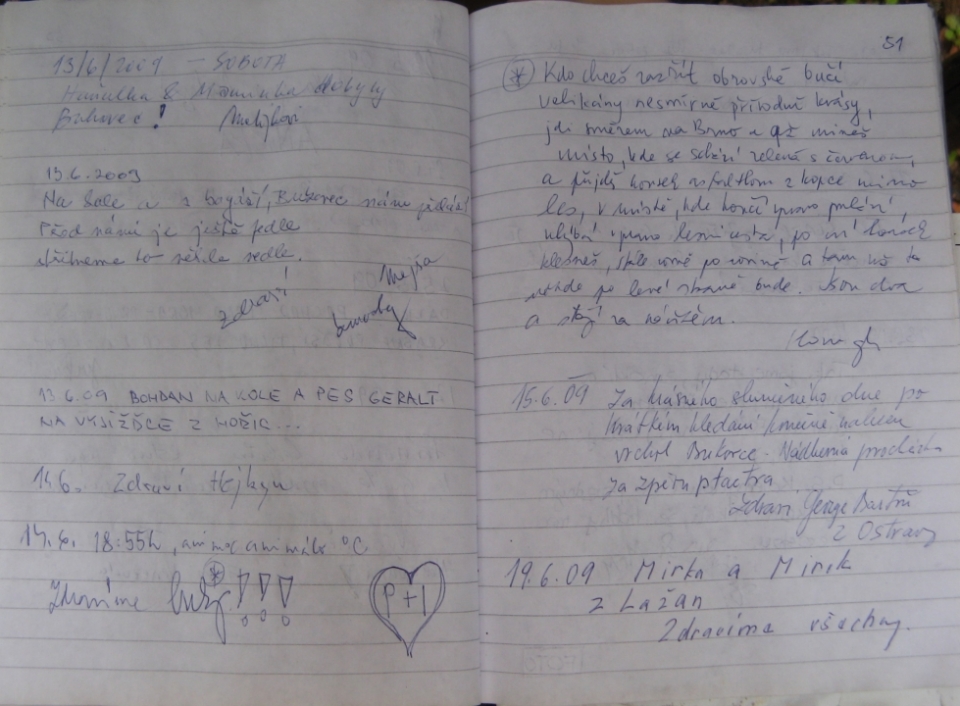 13/6/2009 – SOBOTA
& Maminka dobyly
Bukovec!
13.6.2009
Na kole a z Bukovec námi
Před námi je ještě jedle
to
zdraví
13.6.09 BOHDAN NA KOLE A PES GERALT
NA VYJÍŽĎCE Z HOŘIC...
14.6. Zdraví
14.6. 18:55h, ani moc ani málo °C
Zdravíme buky * !!!
P+I
51
* Kdo chceš zažít obrovské bučí
velikány nesmírné přírodní krásy,
jdi směrem na Brno a až mineš
místo, kde se schází zelená s červenou,
a přijdeš kousek asfaltkou z kopce mimo
les, v místě, kde končí vpravo
uhýbá vpravo lesní cesta, po ní kousek
klesneš, stále rovně po rovině a tam už to
někde po levé straně bude. Jsou dva
a stojí za
15.6.09 Za krásného slunečného dne po
krátkém hledání konečně nalezen
vrchol Bukovce. Nádherná procházka
za zpěvu ptactva
Zdraví George Bartoň
z Ostravy
19.6.09 Mirka a Mirek
z Lažan
Zdravíme všechny.